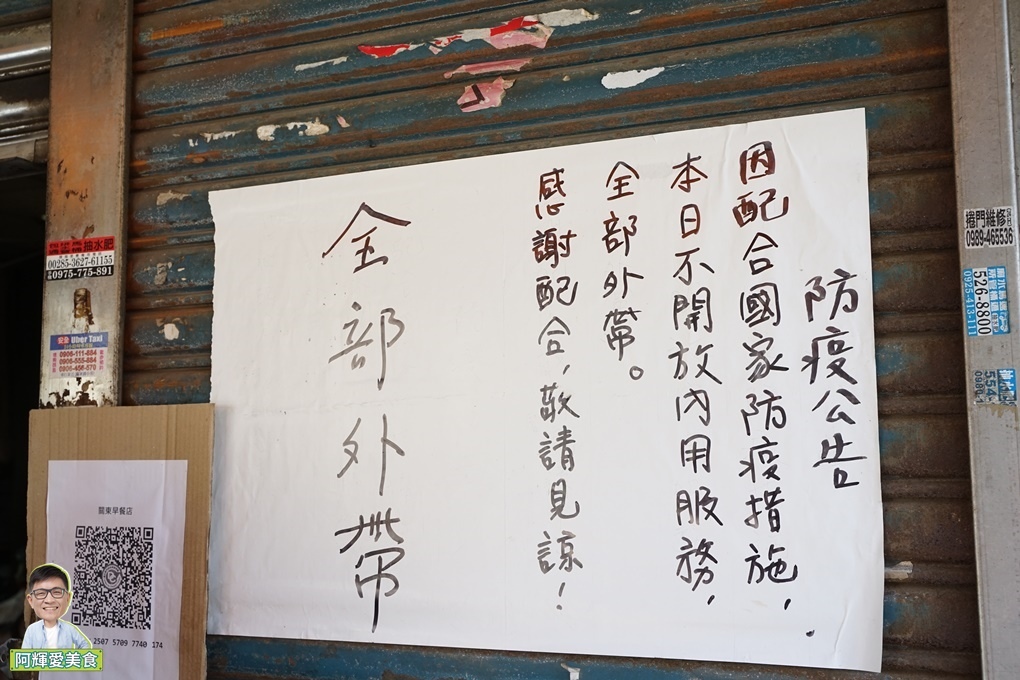 防疫公告
因配合國家防疫措施，
本日不開放內用服務，
全部外帶。
感謝配合，敬請見諒！
全部外帶
抽水肥
00285-3627-61155
0975-775-891
安全 Uber Taxi
0906-111-884
0906-555-884
0906-456-570
關東早餐店
2507 5709 7740 174
阿輝愛美食
捲門維修
0989-465536
526-8800
0925-413-111
554-